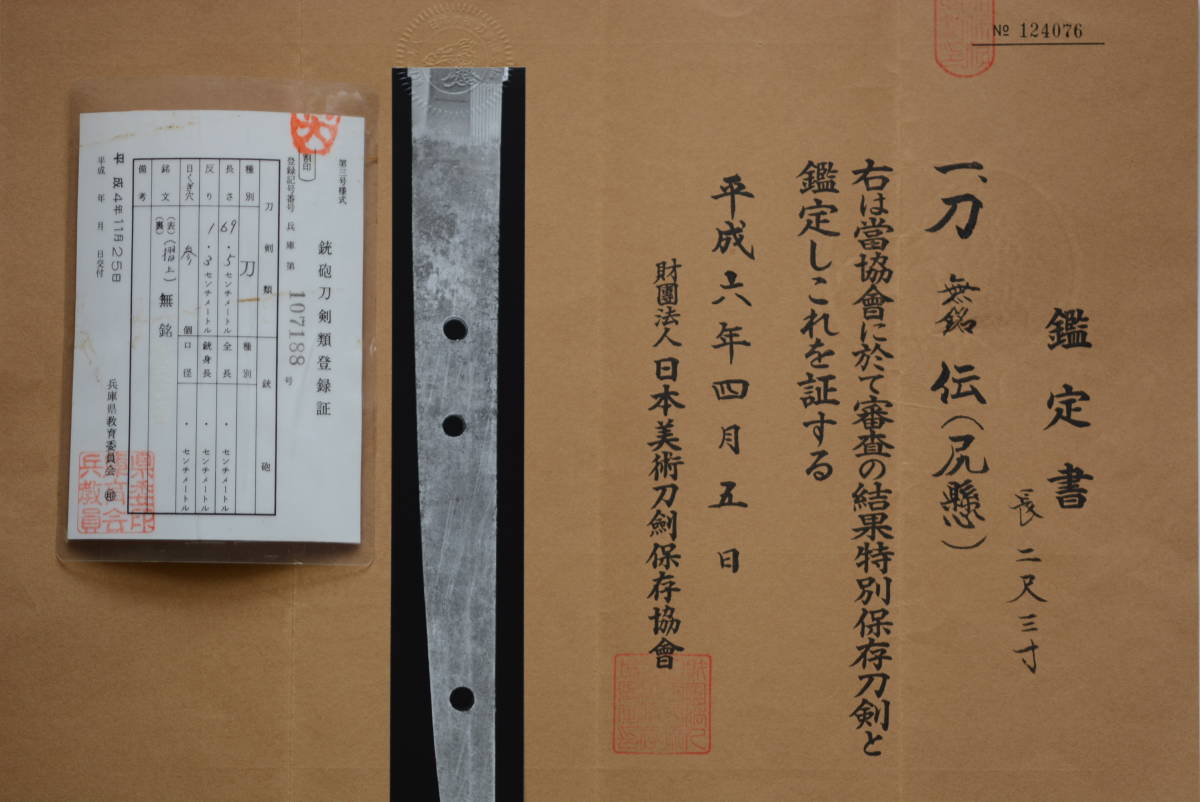 № 124076
鑑定書
長 二尺三寸
一、刀 無銘 伝(尻懸)
右は當協會に於て審査の結果特別保存刀剣と
鑑定しこれを証する
平成六年四月五日
財團法人日本美術刀劍保存協會
第三号様式
銃砲刀剣類登録証
割印
登録記号番号 兵庫 第 107188 号
刀剣類 銃砲
種別 刀 種別
長さ 69.5センチメートル 全長 ・ センチメートル
反り 1.3センチメートル 銃身長 ・ センチメートル
目くぎ穴 参 個 口径 ・ センチメートル
銘文 (表)(裏) (摺上)無銘
備考
平成4年11月25日
平成 年 月 日交付
兵庫県教育委員会